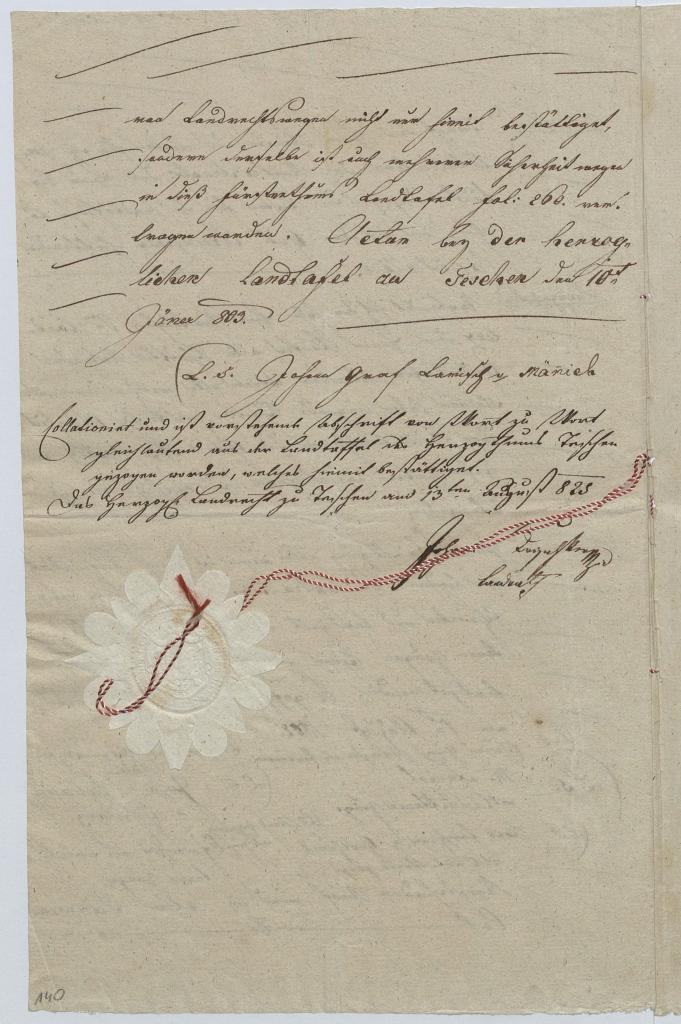 von Landrechtswegen nicht nur hiemit bestättiget,
sondern derselbe ist auch mehrerer Sicherheit wegen
in dieß Fürstenthums Landtafel fol: 260. ein¬
tragen worden. Actum bey der herzog¬
lichen Landtafel zu Teschen den 10t
Jäner 803.
(L. S. Johann Graf Larisch v Mänich
Collationirt und ist vorstehende Abschrift von Wort zu Wort
gleichlautend aus der Landtaffel des Herzogthums Teschen
gezogen worden, welches hiemit bestättiget.
Das Herzogl Landrecht zu Teschen am 13ten August 825
Joh
140